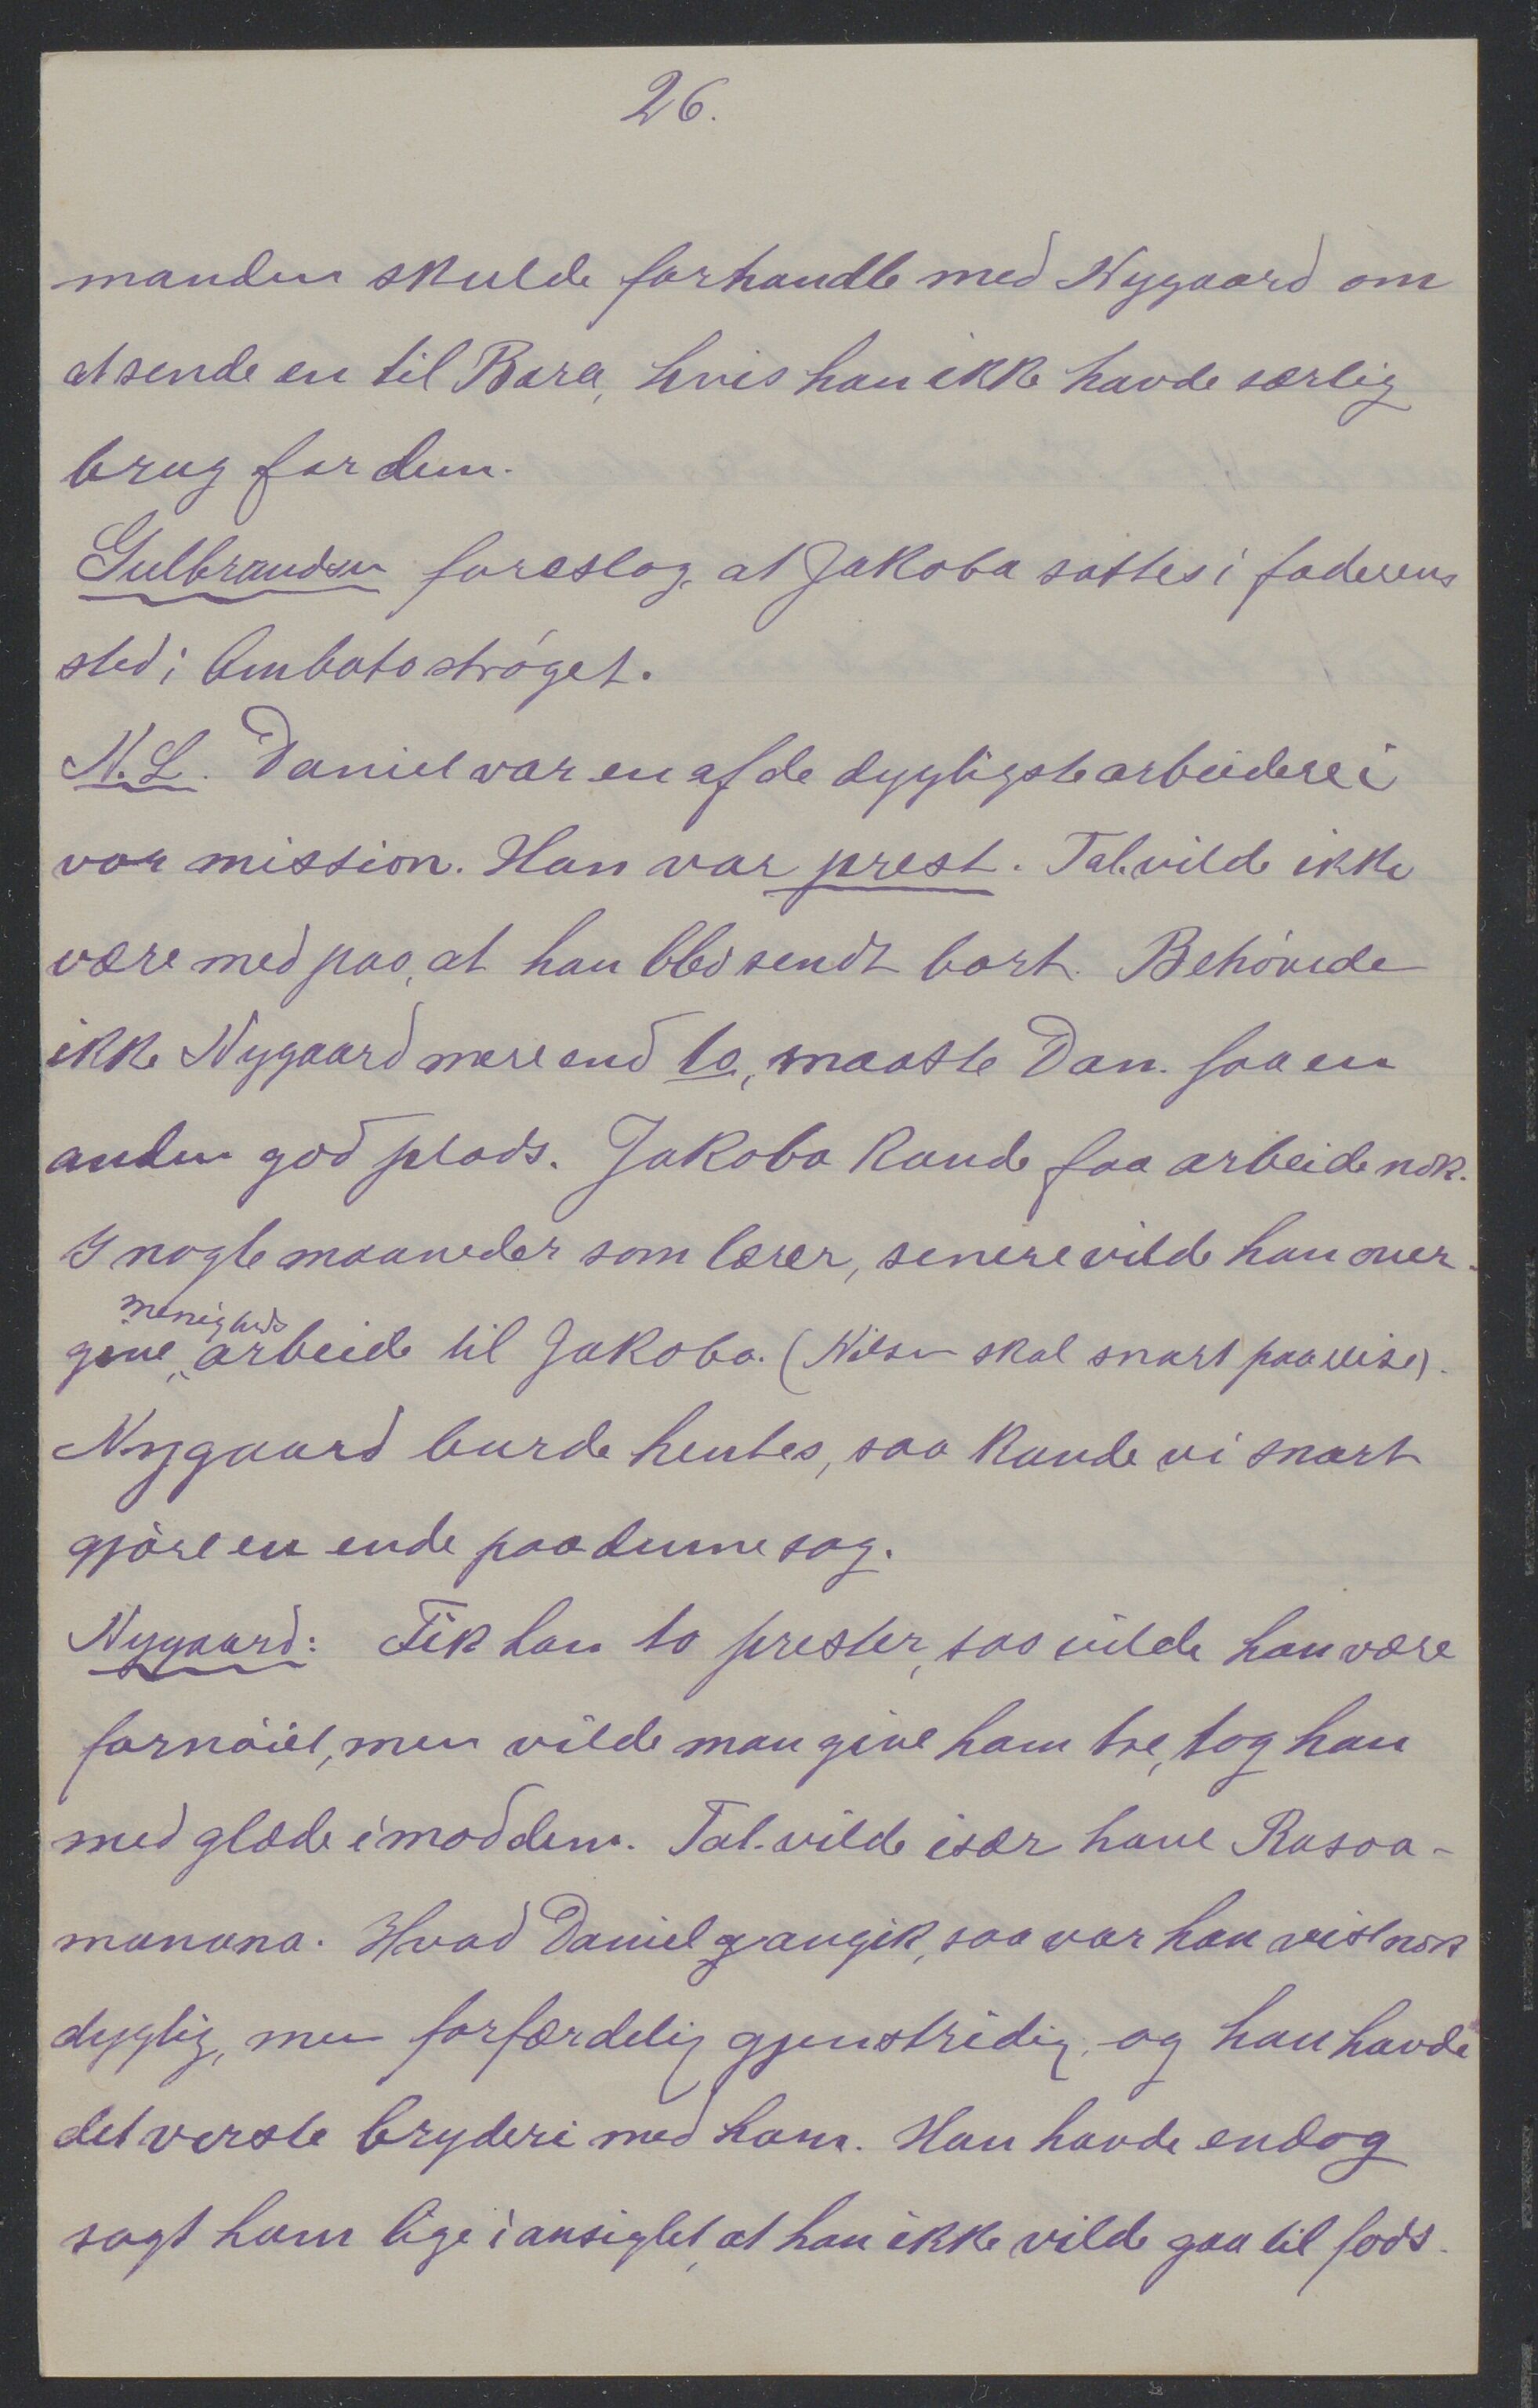 26.
manden skulde forhandle med Nygaard om
at sende en til Bara, hvis han ikke havde særlig
brug for dem.
Gulbrandsen foreslog, at Jakoba sattes i faderens
sted i Ambatostrøget.
N. L. Daniel var en af de dygtigste arbeidere i
vor mission. Han var prest. Tal. vilde ikke
være med paa, at han blev sendt bort. Behøvede
ikke Nygaard mere end to, maatte Dan. faa en
anden god plads. Jakoba kunde faa arbeide nok.
I nogle maaneder som lærer, senere vilde han over-
menigheds
give arbeide til Jakoba. (Nilsen skal snart paa reise).
Nygaard burde hentes, saa kunde vi snart
gjøre en ende paa denne sag.
Nygaard: Fik han to prester, saa vilde han være
fornøiet, men vilde man give ham tre, tog han
med glæde imod dem. Tal. vilde især have Rasoa-
manana. Hvad Daniel angik, saa var han vistnok
dygtig, men forfærdelig gjenstridig, og han havde
det verste bryderi med ham. Han havde endog
sagt ham lige i ansigtet, at han ikke vilde gaa til fods.